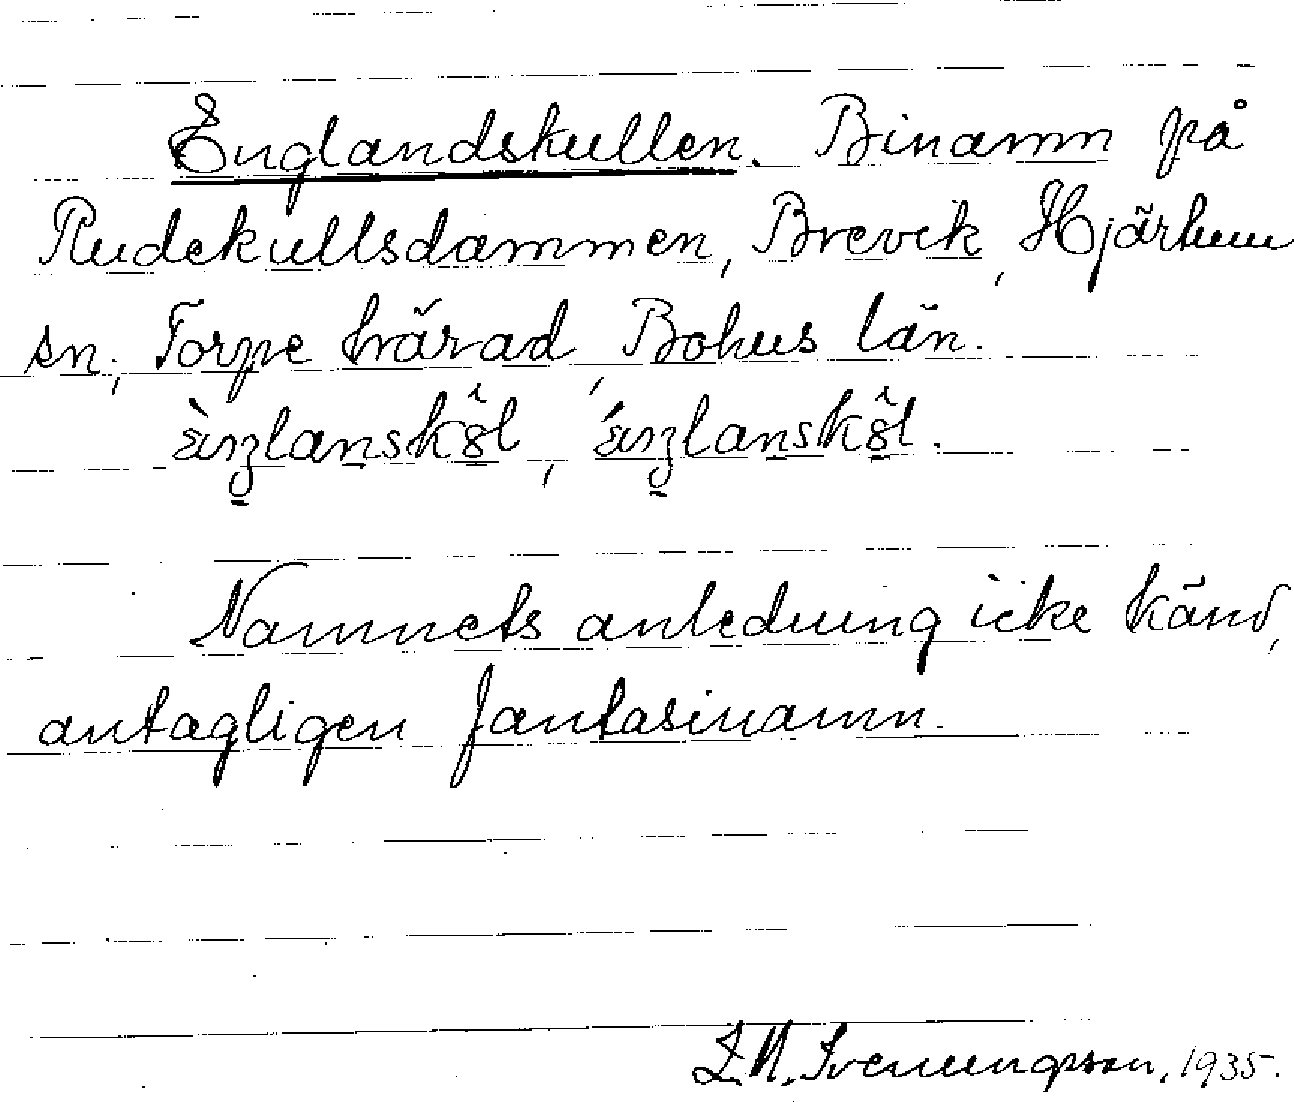 Englandskullen. Binamn på
Rudekullsdammen, Brevik, Hjärtum
sn, Torpe härad, Bohus län.
Namnets anledning icke känd,
antagligen fantasinamn.
1935.